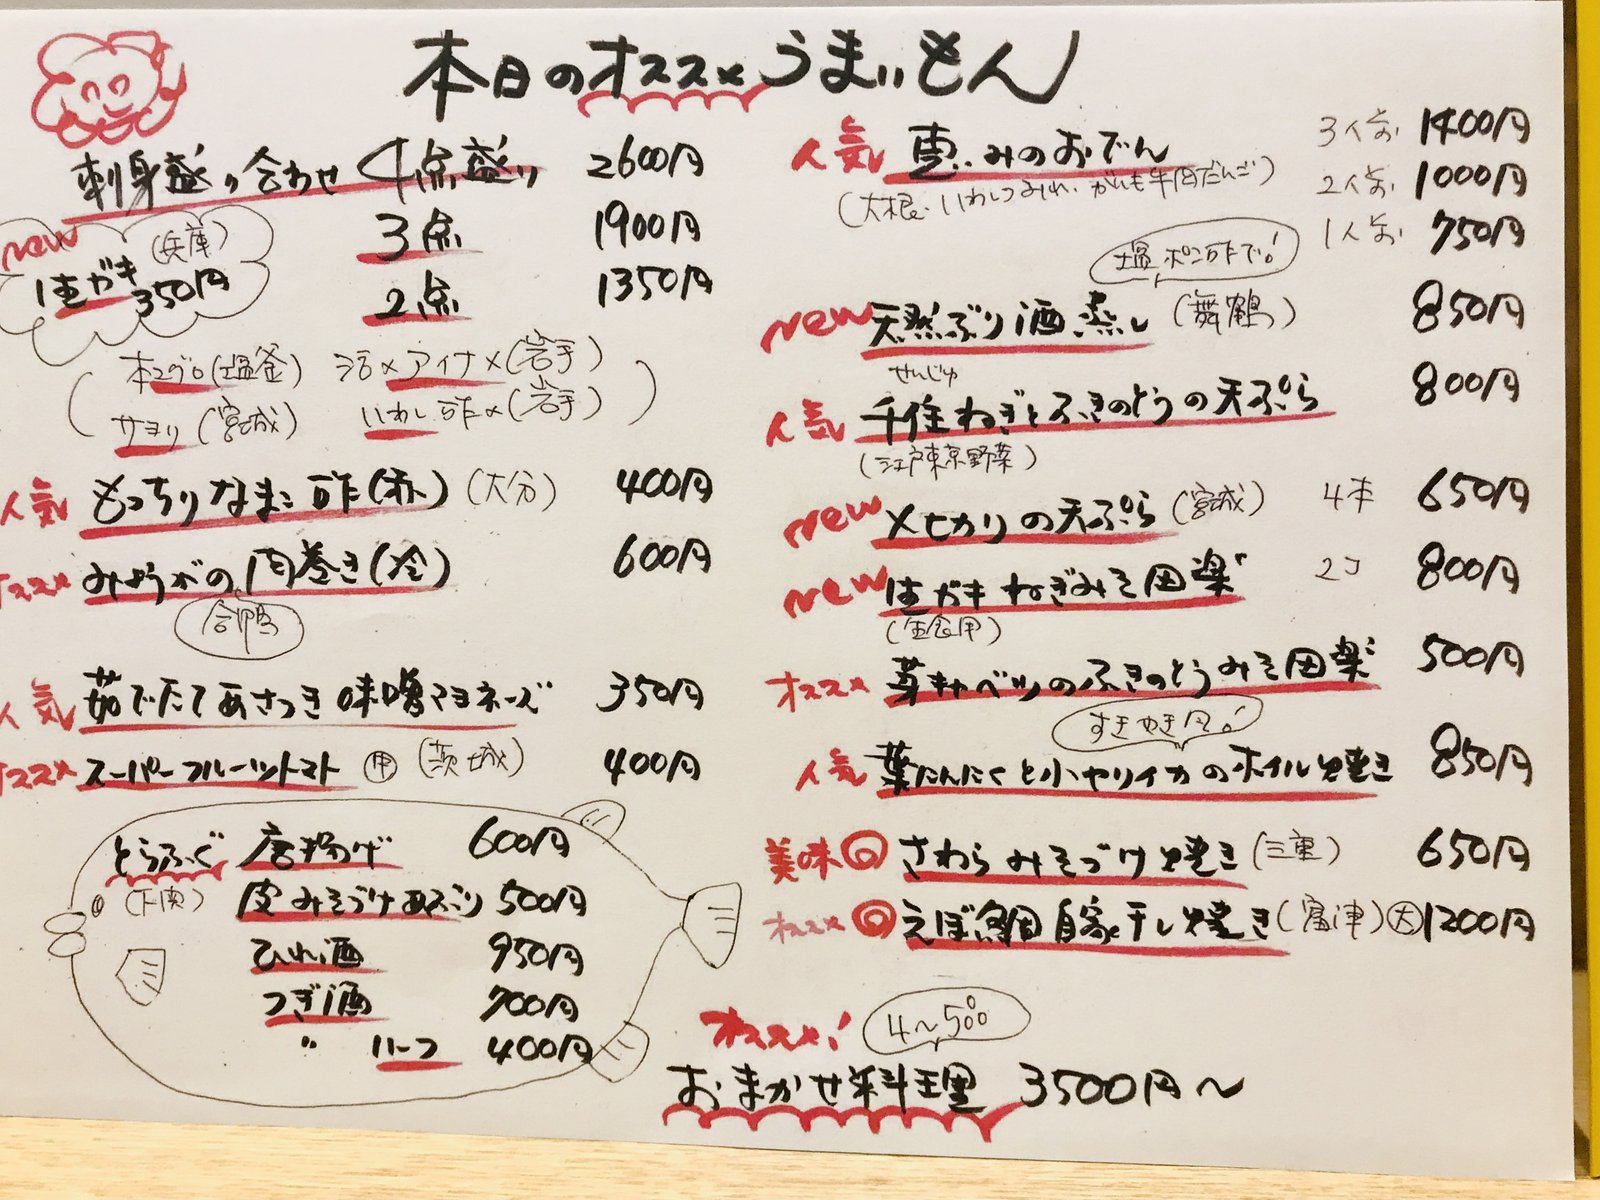 本日のオススメうまいもん
刺身盛り合わせ 4点盛り 2600円
3点 1900円
2点 1350円
new 生ガキ (兵庫) 350円
本マグロ(塩釜) 活〆アイナメ(岩手)
サヨリ(宮城) いわし酢〆(岩手)
人気 もっちりなまこ酢(赤) (大分) 400円
オススメ みょうがの肉巻き(冷) 600円
合鴨
人気 茹でたてあさつき味噌マヨネーズ 350円
オススメ スーパーフルーツトマト 甲 (茨城) 400円
とらふぐ 唐揚げ 600円
(下関) 皮みそづけあぶり 500円
ひれ酒 950円
つぎ酒 700円
〃 ハーフ 400円
人気 恵みのおでん 3人前 1400円
(大根・いわしつみれ・がんも牛肉だんご) 2人前 1000円
1人前 750円
塩ポン酢で!
new 天然ぶり酒蒸し (舞鶴) 850円
せんじゅ
人気 千住ねぎとふきのとうの天ぷら 800円
(江戸東京野菜)
new メヒカリの天ぷら (宮城) 4本 650円
new 生ガキねぎみそ田楽 2コ 800円
(生食用)
オススメ 芽キャベツのふきのとうみそ田楽 500円
すきやき風!
人気 葉にんにくと小ヤリイカのホイル焼き 850円
美味 さわらみそづけ焼き (三重) 650円
オススメ えぼ鯛自家干し焼き (富津) 大 1200円
オススメ!
4〜500
おまかせ料理 3500円〜